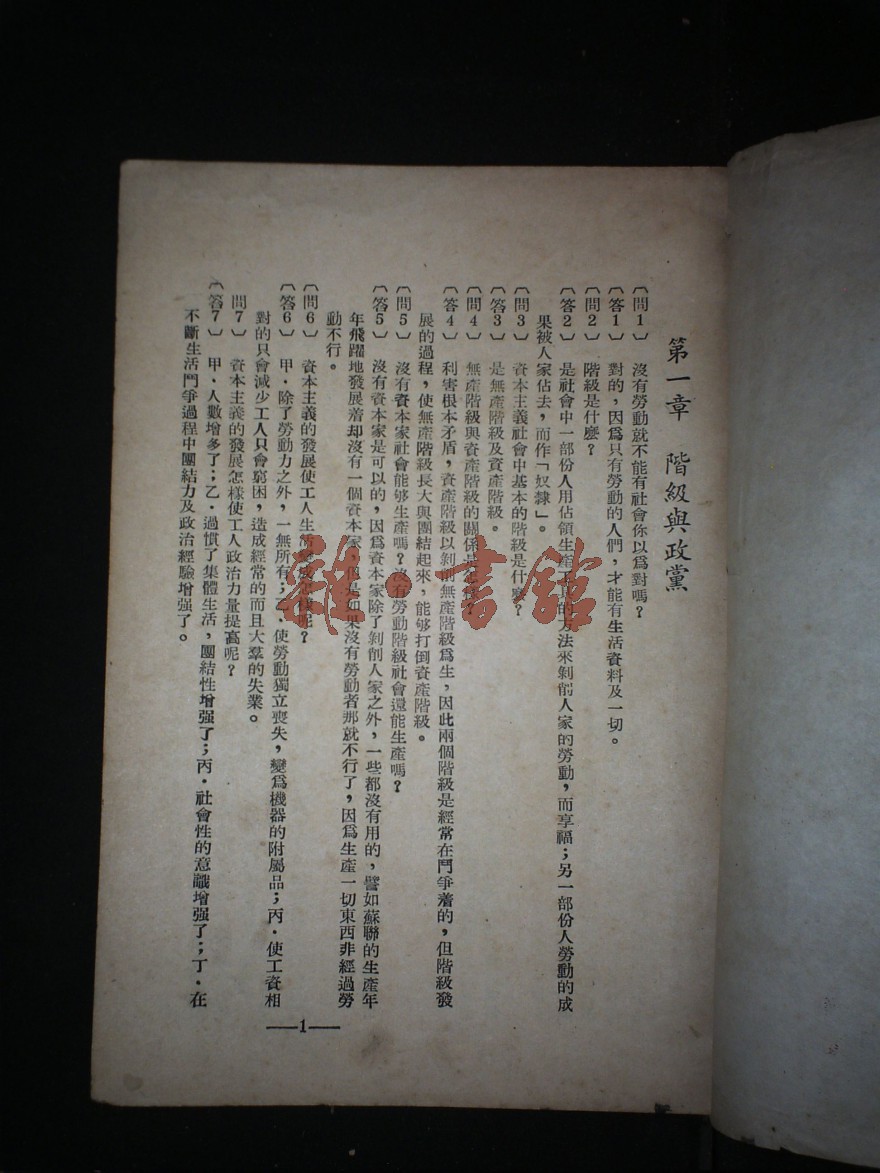 第一章 階級與政黨
〔問1〕 沒有勞動就不能有社會你以爲對嗎？
〔答1〕 對的，因爲只有勞動的人們，才能有生活資料及一切。
〔問2〕 階級是什麼？
〔答2〕 是社會中一部份人用佔領生產 的方法來剝削人家的勞動，而享福；另一部份人勞動的成
果被人家佔去，而作「奴隸」。
〔問3〕 資本主義社會中基本的階級是什麼？
〔答3〕 是無產階級及資產階級。
〔問4〕 無產階級與資產階級的關係是怎樣？
〔答4〕 利害根本矛盾，資產階級以剝削無產階級爲生，因此兩個階級是經常在鬥爭着的，但階級發
展的過程，使無產階級長大與團結起來，能够打倒資產階級。
〔問5〕 沒有資本家社會能够生產嗎？沒有勞動階級社會還能生產嗎？
〔答5〕 沒有資本家是可以的，因爲資本家除了剝削人家之外，一些都沒有用的，譬如蘇聯的生產年
年飛躍地發展着却沒有一個資本家，但是如果沒有勞動者那就不行了，因爲生產一切東西非經過勞
動不行。
〔問6〕 資本主義的發展使工人生活變成怎樣呢？
〔答6〕 甲．除了勞動力之外，一無所有；乙．使勞動獨立喪失，變爲機器的附屬品；丙．使工資相
對的只會減少工人只會窮困，造成經常的而且大羣的失業。
問7〕 資本主義的發展怎樣使工人政治力量提高呢？
〔答7〕 甲．人數增多了；乙．過慣了集體生活，團結性增强了；丙．社會性的意識增强了；丁．在
不斷生活鬥爭過程中團結力及政治經驗增强了。
—1—
雜·書館